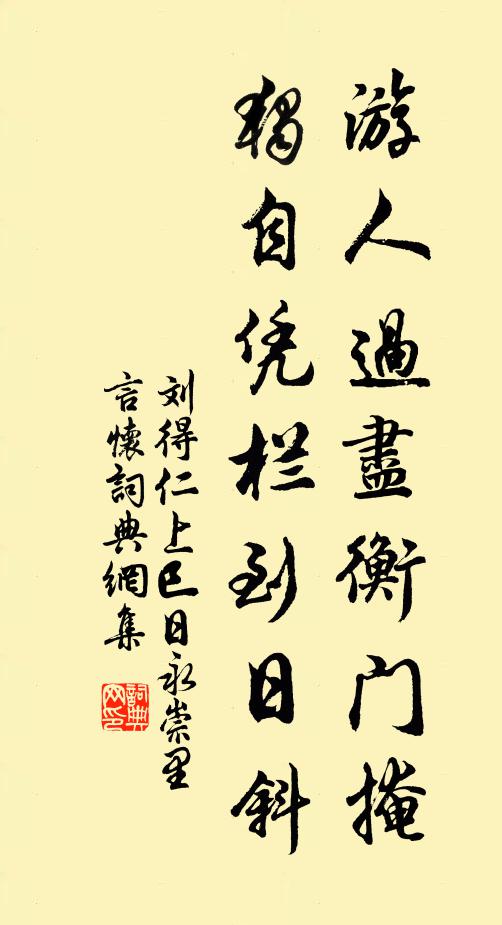 游人過盡衡门掩
獨自凭栏到日斜
刘得仁上巳日永崇里
言懷詞典網集
詞典网印